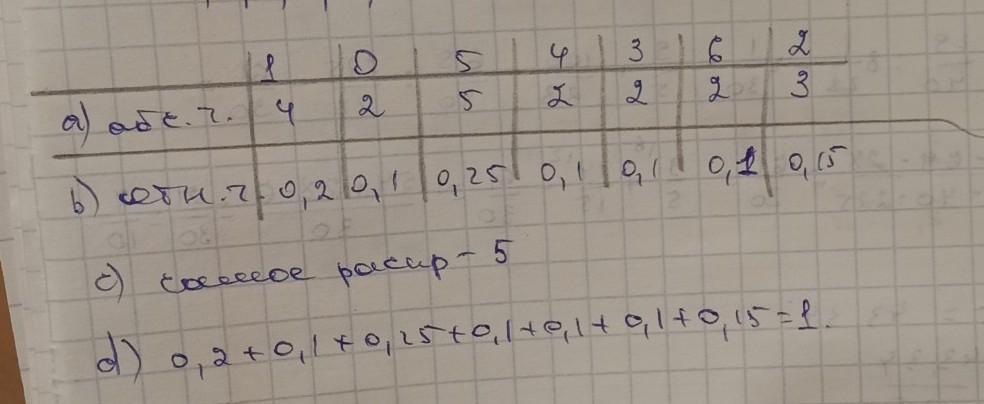 1 0 5 4 3 6 2
a) абс. ч. 4 2 5 2 2 2 3
b) отн. ч. 0,2 0,1 0,25 0,1 0,1 0,1 0,15
c) самое распр - 5
d) 0,2 + 0,1 + 0,25 + 0,1 + 0,1 + 0,1 + 0,15 = 1.